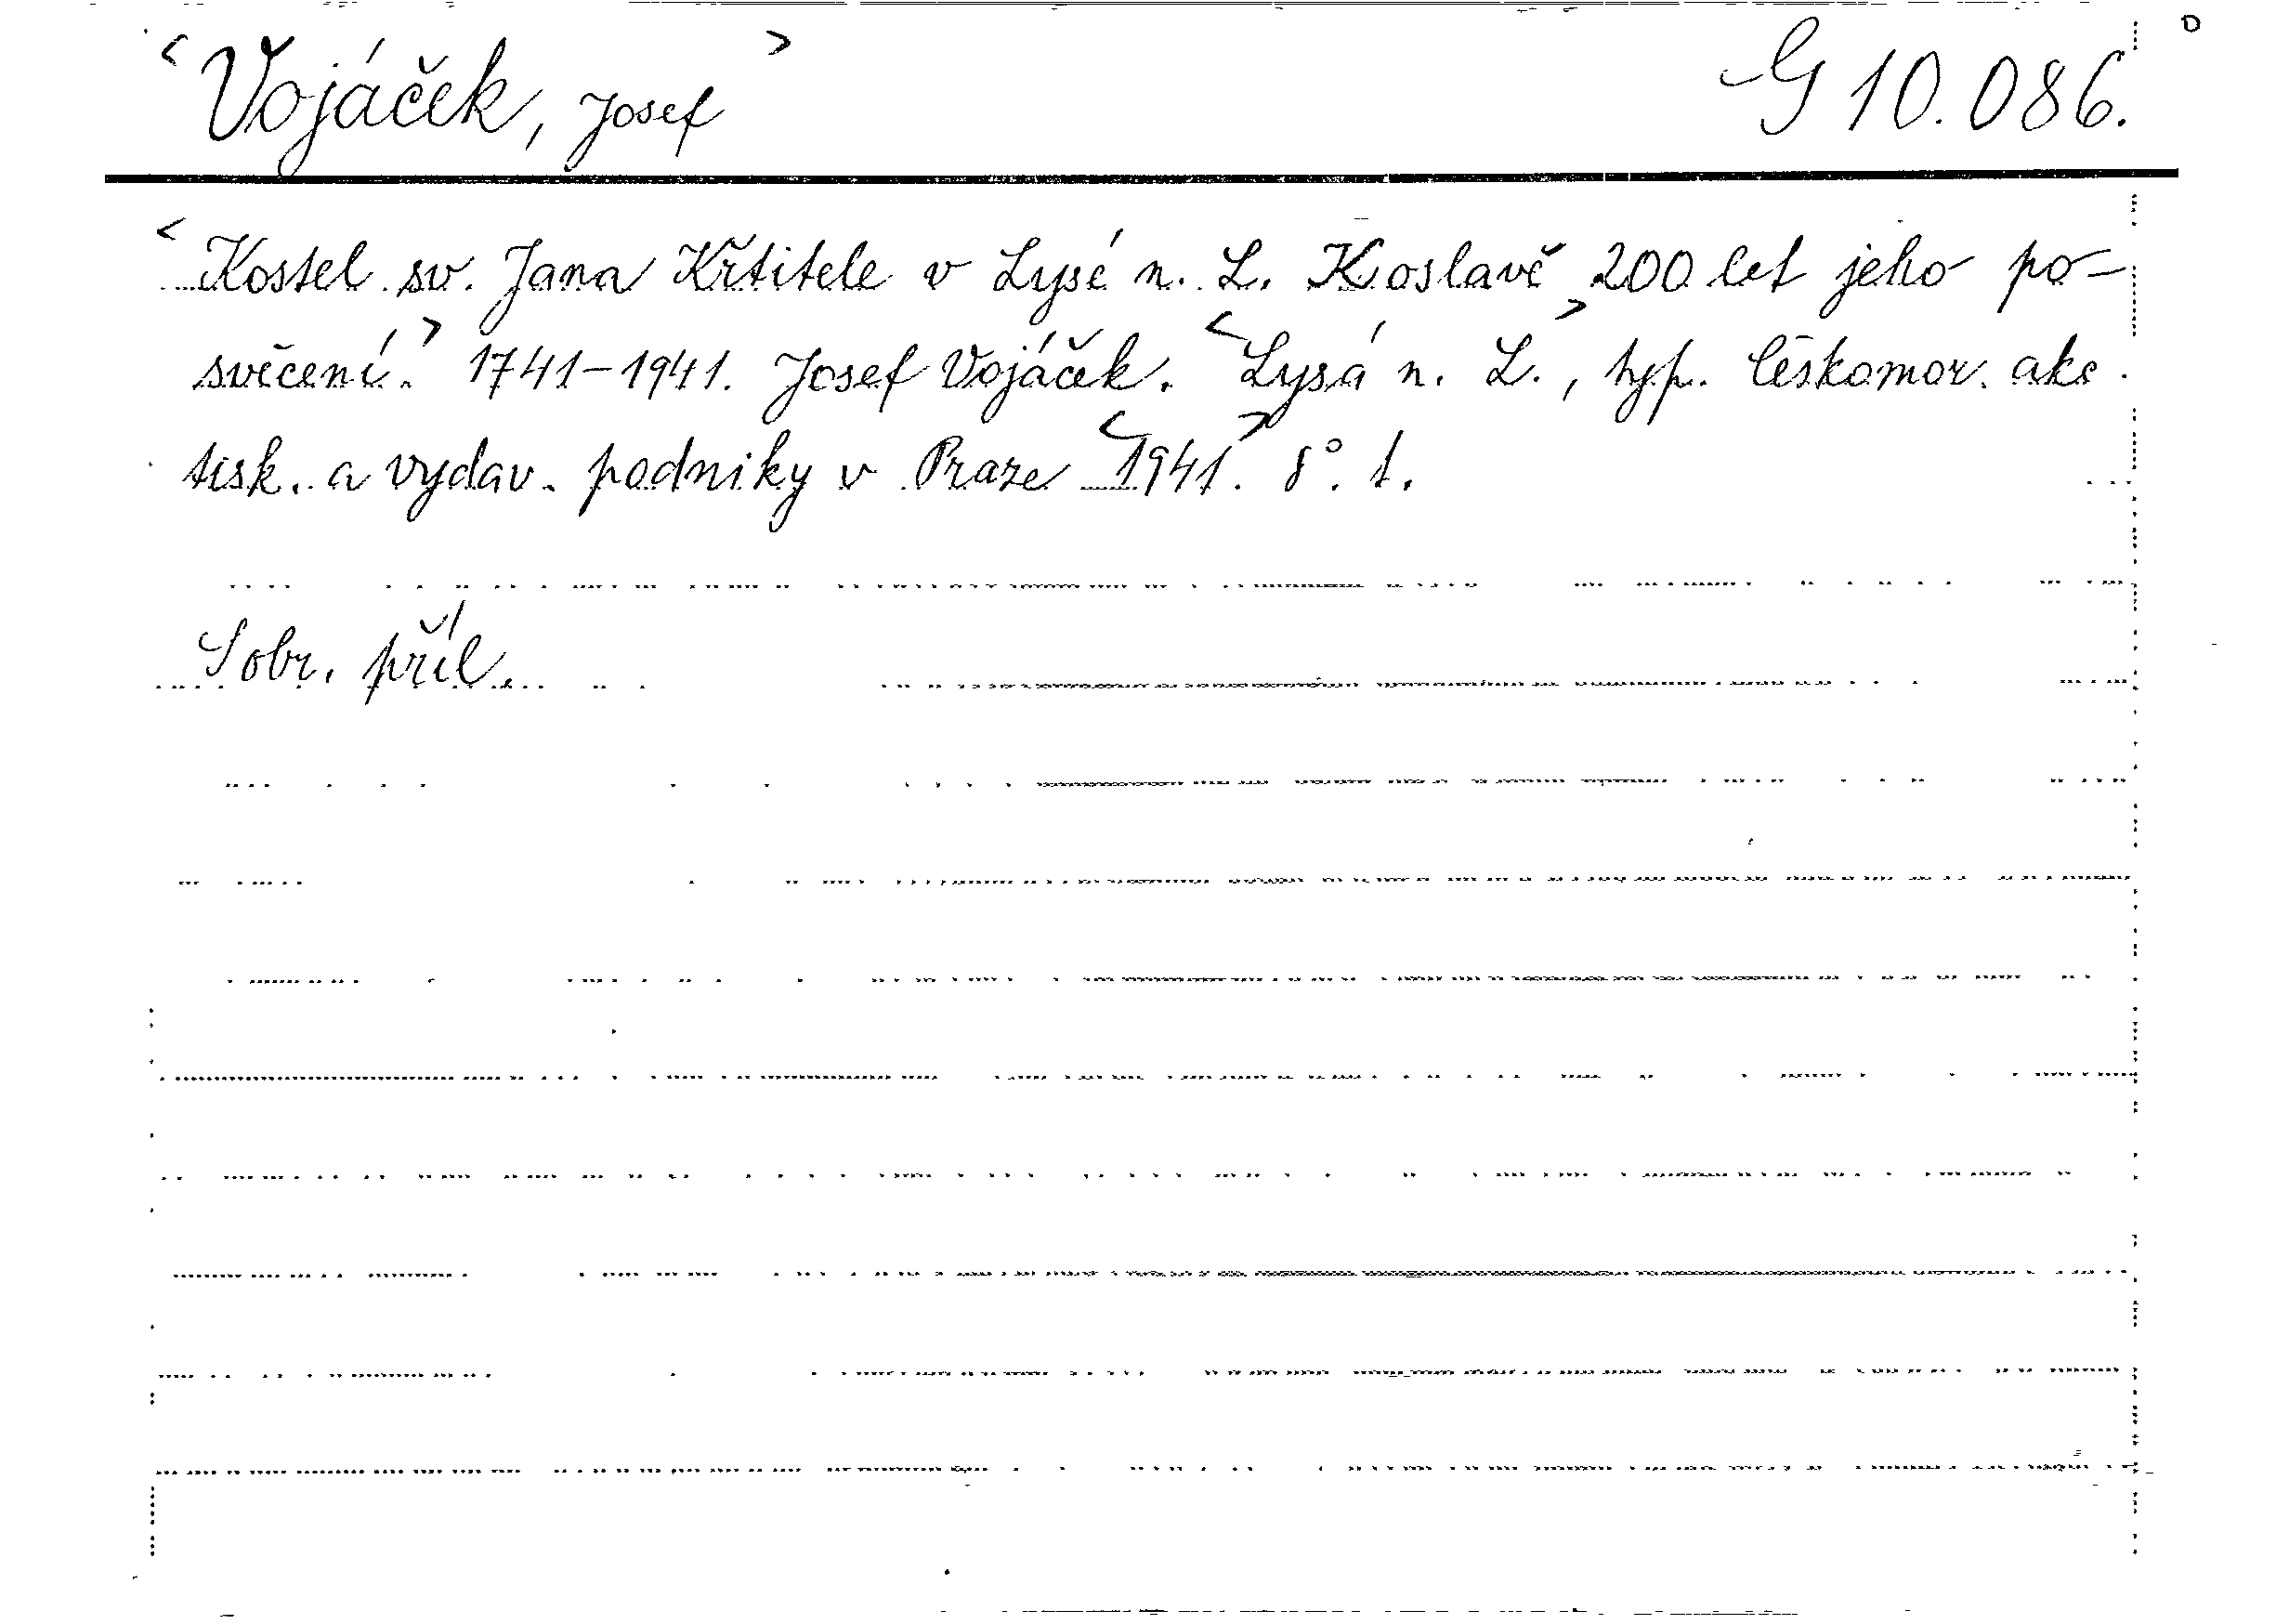 <Vojáček, Josef> G 10.086.
<Kostel sv. Jana Křtitele v Lysé n. L. K oslavě 200 let jeho po-
svěcení.> 1741–1941. Josef Vojáček. <Lysá n. L.>, typ. Českomor. akc.
tisk. a vydav. podniky v Praze <1941>. 8°. 1.
S obr. příl.